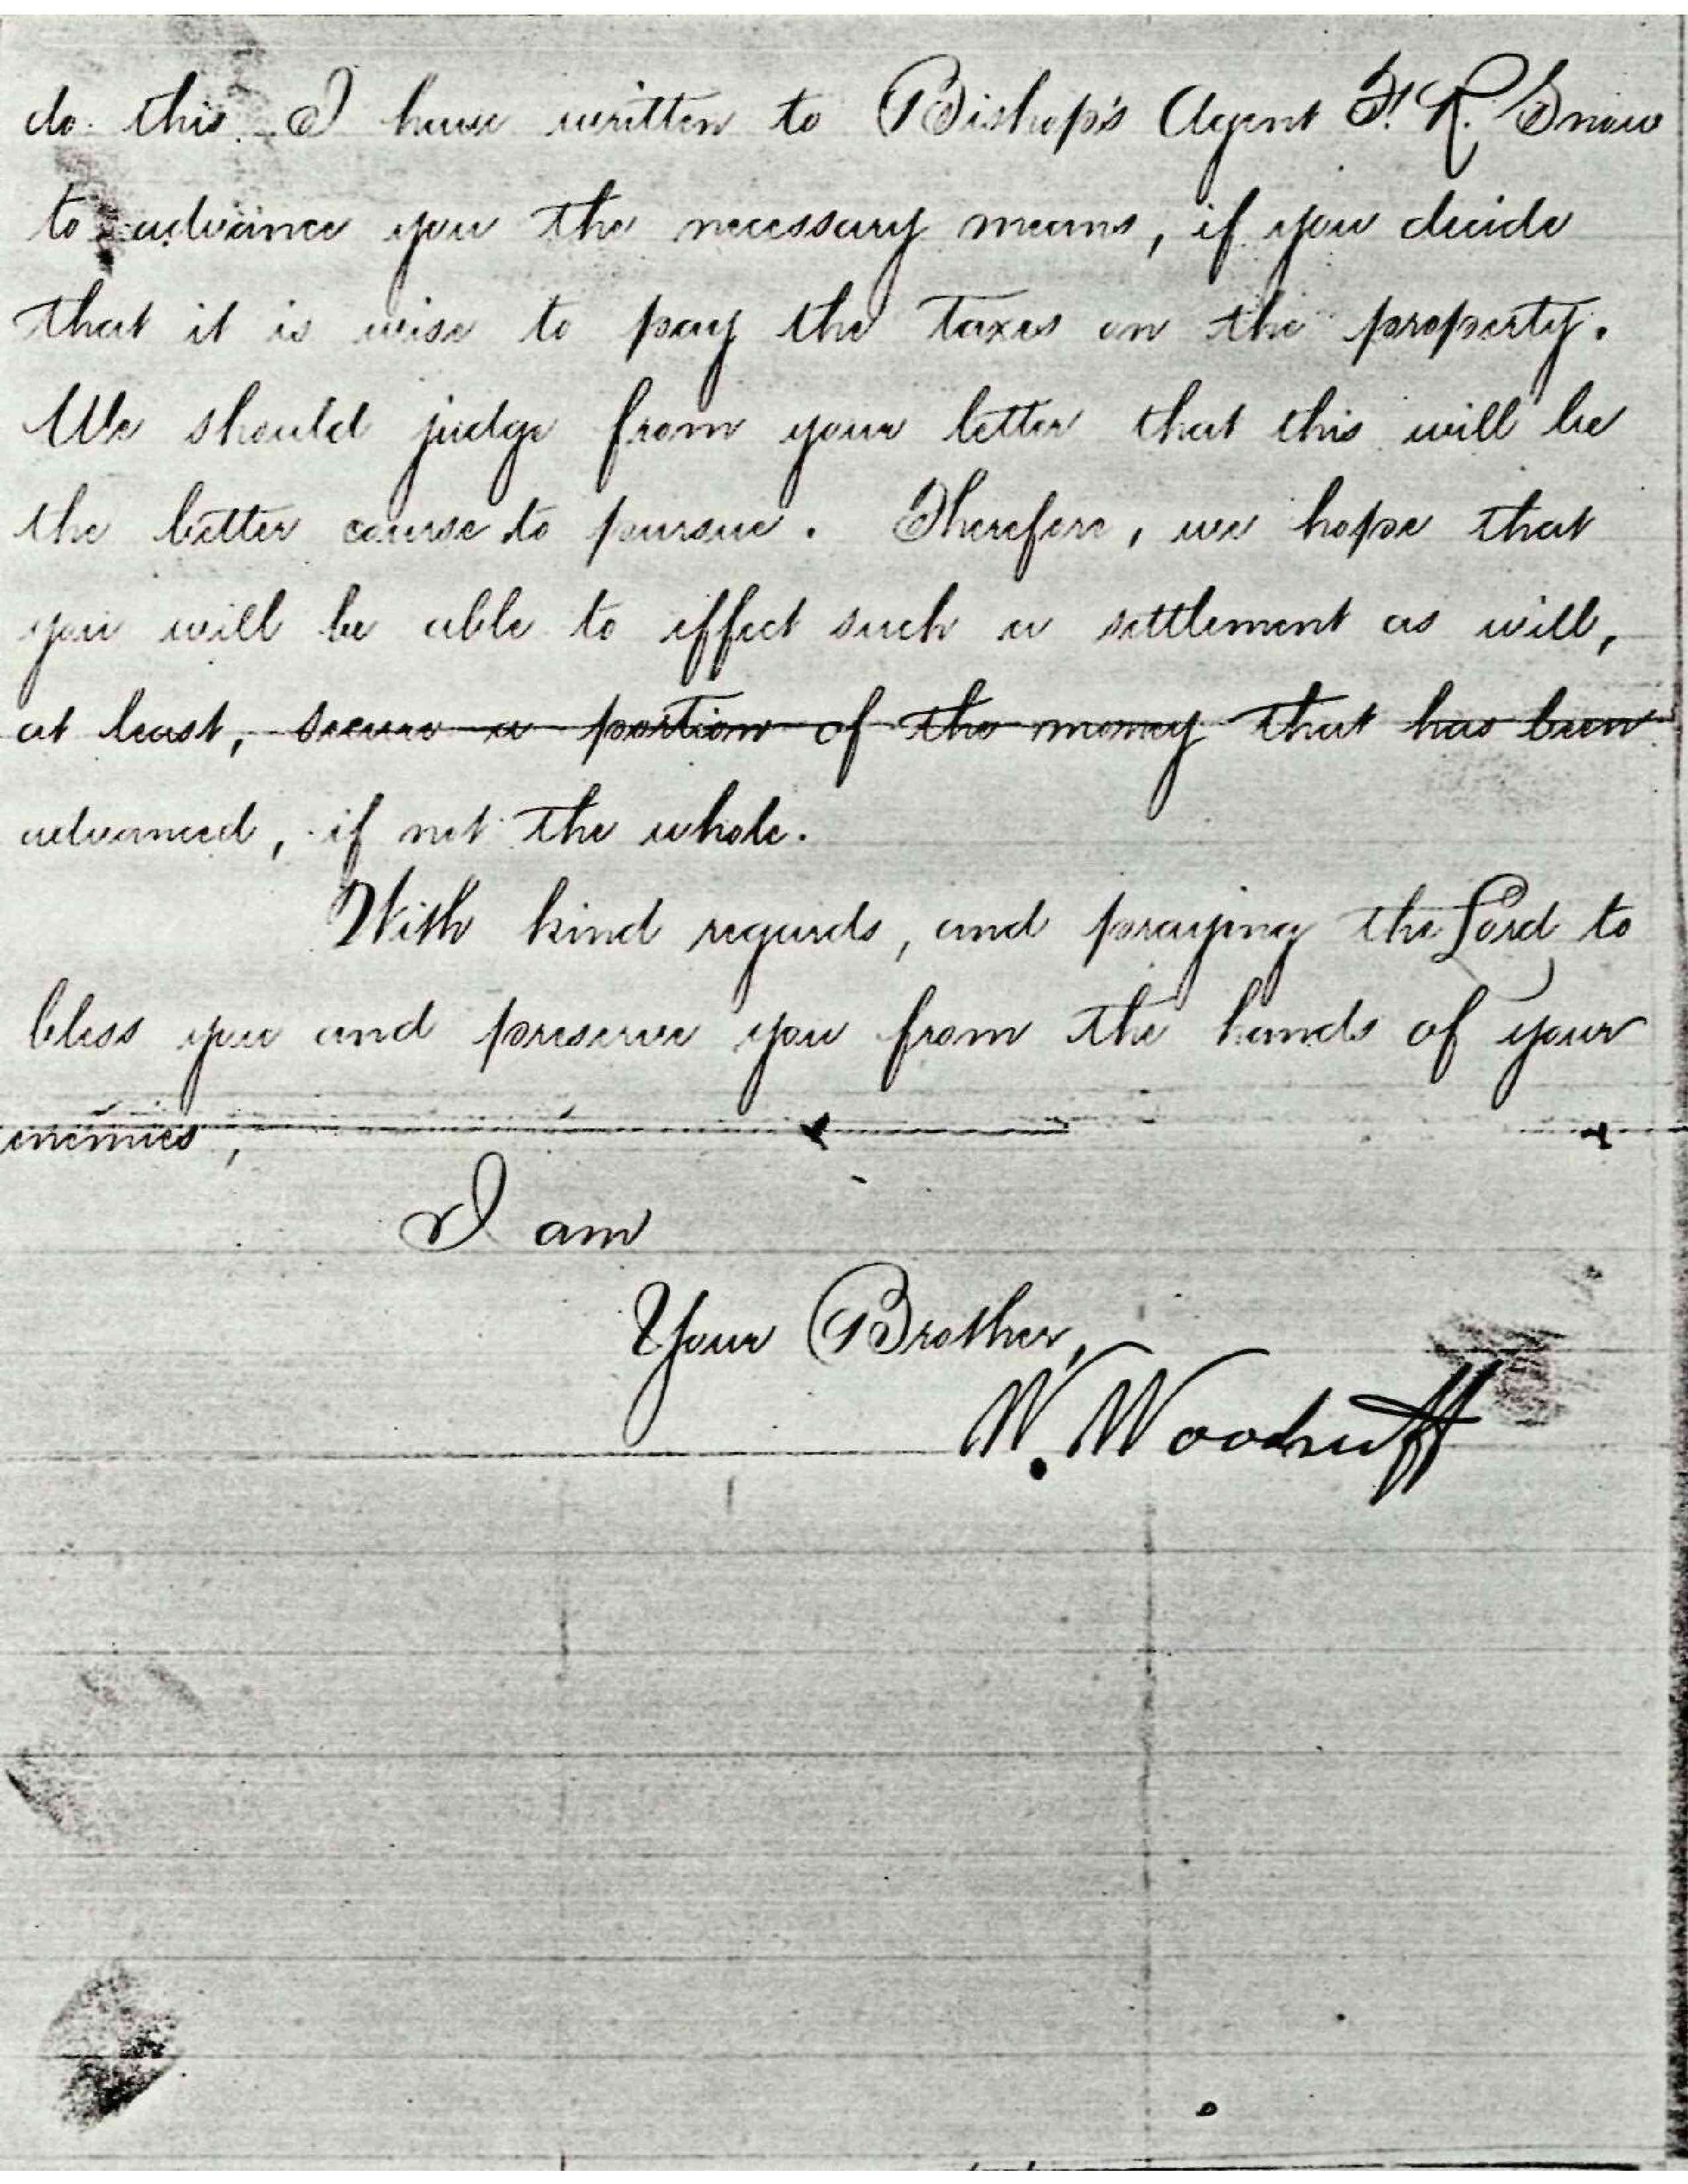 do this. I have written to Bishop's Agent F. R. Snow
to advance you the necessary means, if you decide
that it is wise to pay the Taxes on the property.
We should judge from your letter that this will be
the better course to pursue. Therefore, we hope that
you will be able to effect such a settlement as will,
at least, secure a portion of the money that has been
advanced, if not the whole.
With kind regards, and praying the Lord to
bless you and preserve you from the hands of your
enemies,
I am
Your Brother,
W. Woodruff